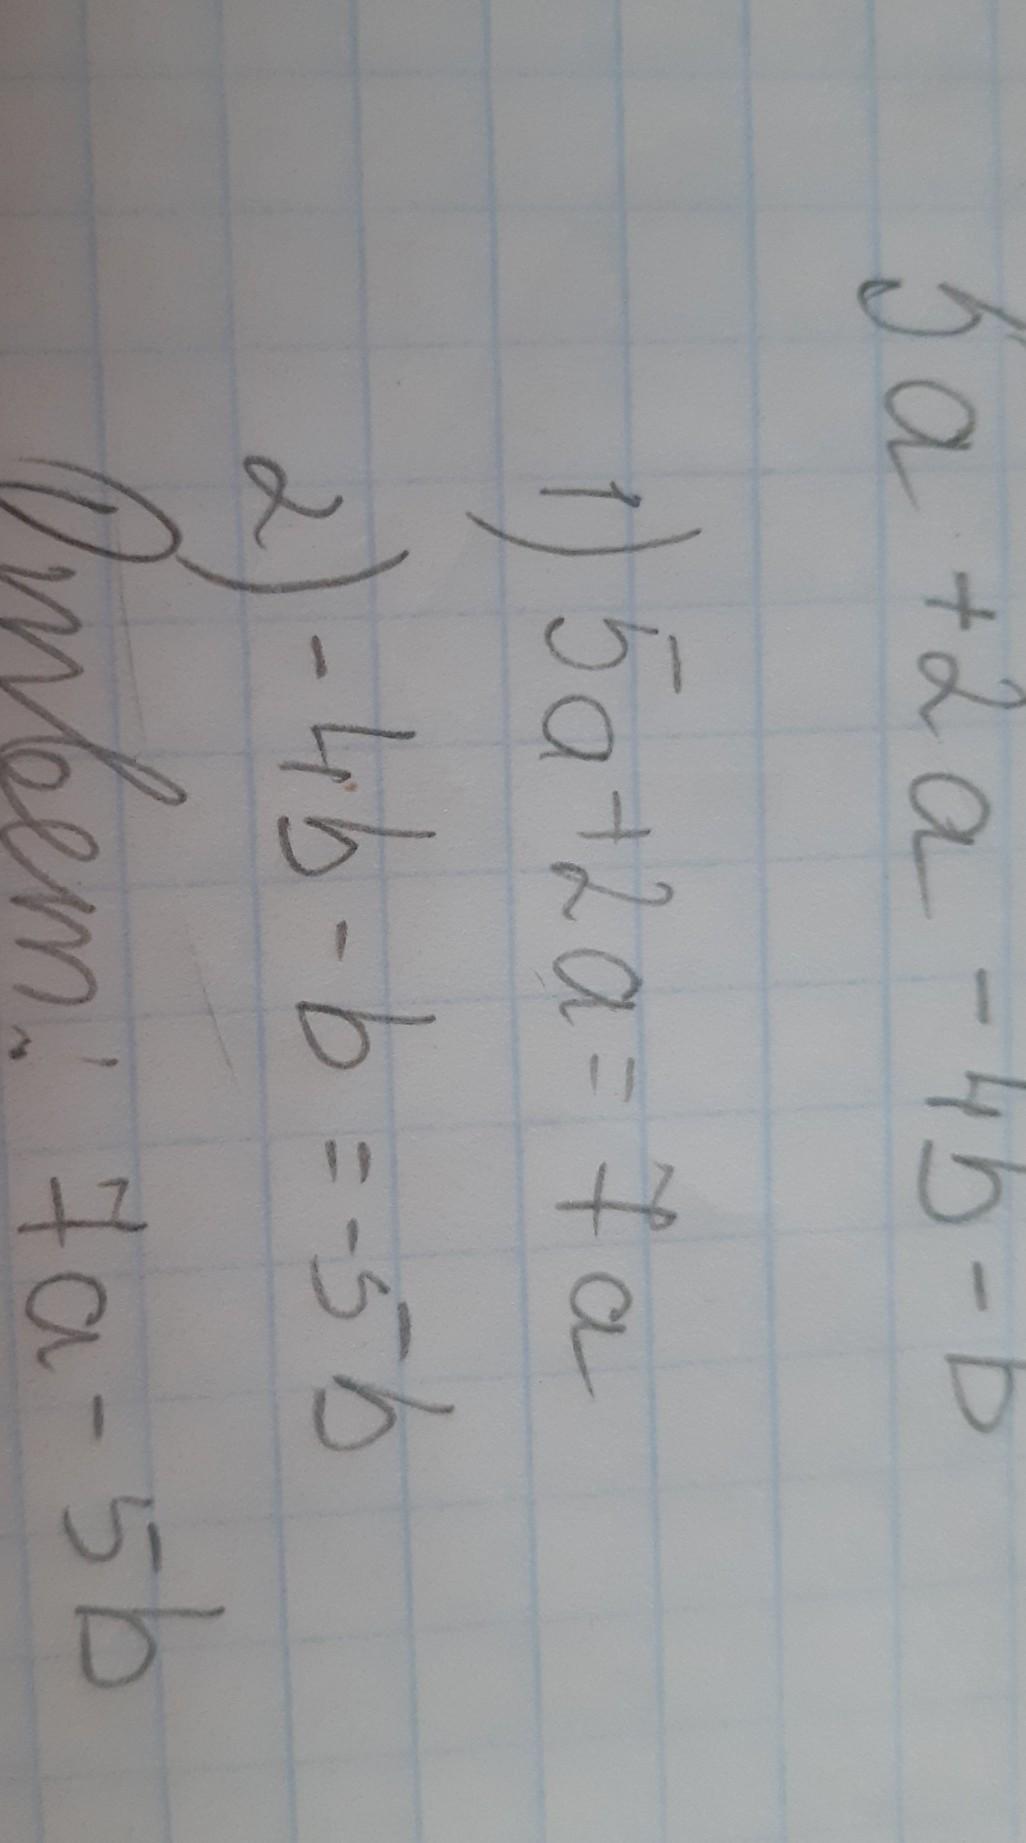 5a + 2a - 4b - b
1) 5a + 2a = 7a
2) - 4b - b = - 5b
Ответ: 7a - 5b